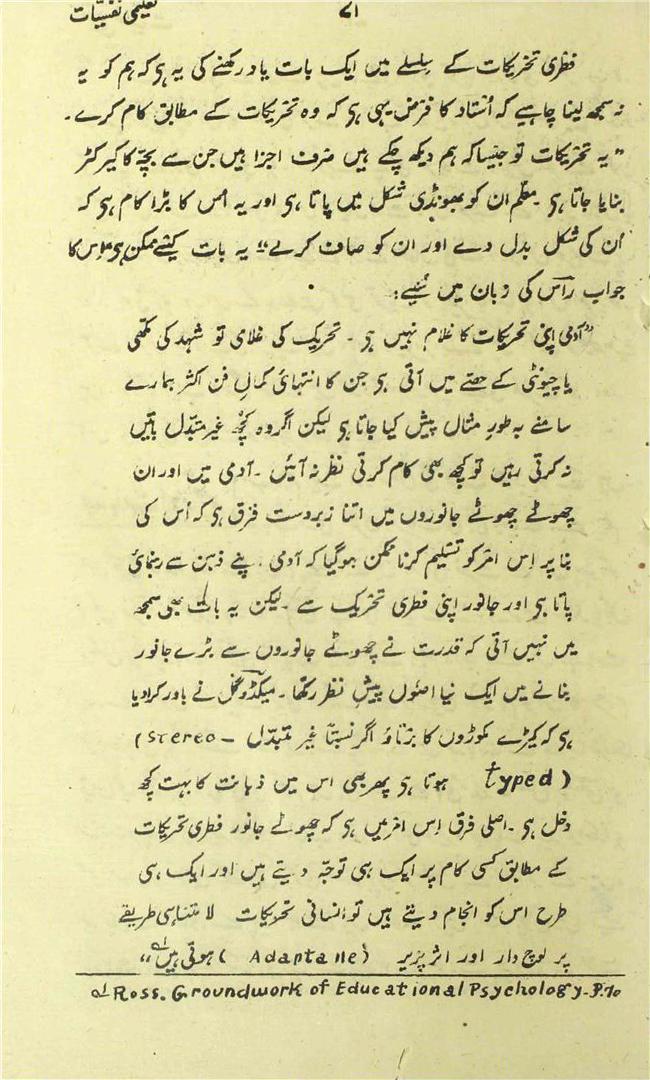 ۷۱ تعلیمی نفسیات
فطری تحریکات کے سلسلے میں ایک بات یاد رکھنے کی یہ ہی کہ ہم کو یہ
نہ سمجھ لینا چاہیے کہ اُستاد کا فرض یہی ہی کہ وہ تحریکات کے مطابق کام کرے۔
”یہ تحریکات تو جیسا کہ ہم دیکھ چکے ہیں صرف اجزا ہیں جن سے بچّہ کا کیرکٹر
بنایا جاتا ہی۔ معلّم ان کو بھونڈی شکل میں پاتا ہی اور یہ اُس کا بڑا کام ہی کہ
اُن کی شکل بدل دے اور ان کو صاف کرلے“ یہ بات کیسے ممکن ہی؟ اس کا
جواب راس کی زبان میں سُنیے:
”آدمی اپنی تحریکات کا غلام نہیں ہی۔ تحریک کی غلامی تو شہد کی مکھّی
یا چیونٹی کے حصّے میں آتی ہی جن کا انتہائی کمالِ فن اکثر ہمارے
سامنے بہ طورِ مثال پیش کیا جاتا ہی لیکن اگر وہ کچھ غیر متبدّل باتیں
نہ کرتی رہیں تو کچھ بھی کام کرتی نظر نہ آئیں۔ آدمی میں اور ان
چھوٹے چھوٹے جانوروں میں اتنا زبردست فرق ہی کہ اُس کی
بنا پر اِس امر کو تسلیم کرنا ممکن ہوگیا کہ آدمی اپنے ذہن سے رہنمائی
پاتا ہی اور جانور اپنی فطری تحریک سے۔ لیکن یہ بات بھی سمجھ
میں نہیں آتی کہ قدرت نے چھوٹے جانوروں سے بڑے جانور
بنانے میں ایک نیا اصول پیشِ نظر رکھا۔ میکڈوگل نے باور کرا دیا
ہی کہ کیڑے مکوڑوں کا برتاؤ اگر نسبتاً غیر متبدّل (Stereo-
typed) ہوتا ہی پھر بھی اس میں ذہانت کا بہت کچھ
دخل ہی۔ اصلی فرق اِس امر میں ہی کہ چھوٹے جانور فطری تحریکات
کے مطابق کسی کام پر ایک ہی توجّہ دیتے ہیں اور ایک ہی
طرح اس کو انجام دیتے ہیں تو انسانی تحریکات لا متناہی طریقے
پر لوچ دار اور اثر پزیر (Adaptane) ہوتی ہیں“ ؂۱
؂۱ Ross. Groundwork of Educational Psychology-P.70